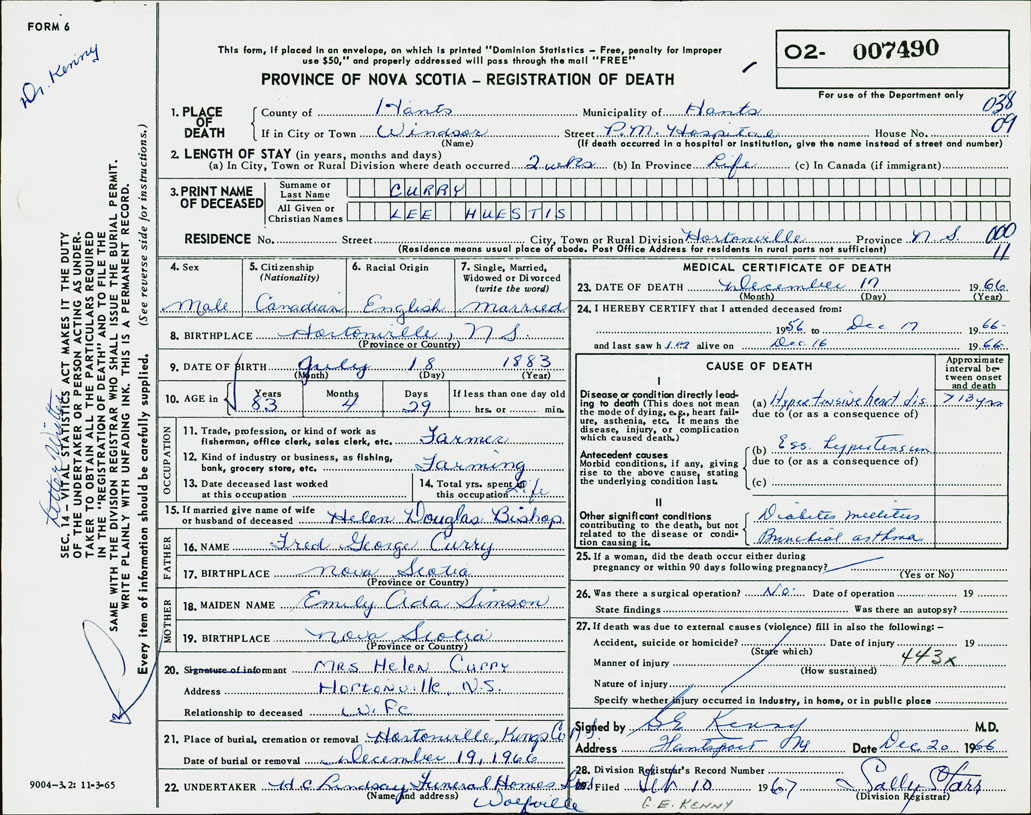 FORM 6
Dr. Kenny
This form, if placed in an envelope, on which is printed "Dominion Statistics – Free, penalty for improper
use $50," and properly addressed will pass through the mail "FREE"
PROVINCE OF NOVA SCOTIA – REGISTRATION OF DEATH
02- 007490
For use of the Department only
038
09
1. PLACE OF DEATH
County of Hants Municipality of Hants
If in City or Town Windsor Street P.M. Hospital House No.
(Name) (If death occurred in a hospital or institution, give the name instead of street and number)
2. LENGTH OF STAY (in years, months and days)
(a) In City, Town or Rural Division where death occurred 2 wks (b) In Province Life (c) In Canada (if immigrant)
3. PRINT NAME OF DECEASED
Surname or Last Name CURRY
All Given or Christian Names LEE HUESTIS
RESIDENCE No. Street City, Town or Rural Division Hortonville Province N.S. 000
11
(Residence means usual place of abode. Post Office Address for residents in rural parts not sufficient)
4. Sex Male
5. Citizenship (Nationality) Canadian
6. Racial Origin English
7. Single, Married, Widowed or Divorced (write the word) Married
8. BIRTHPLACE Hortonville, N.S.
(Province or Country)
9. DATE OF BIRTH July 18 1883
(Month) (Day) (Year)
10. AGE in Years 83 Months 4 Days 29 If less than one day old hrs. or min.
OCCUPATION
11. Trade, profession, or kind of work as fisherman, office clerk, sales clerk, etc. Farmer
12. Kind of industry or business, as fishing, bank, grocery store, etc. Farming
13. Date deceased last worked at this occupation
14. Total yrs. spent in this occupation Life
15. If married give name of wife or husband of deceased Helen Douglas Bishop
FATHER
16. NAME Fred George Curry
17. BIRTHPLACE Nova Scotia
(Province or Country)
MOTHER
18. MAIDEN NAME Emily Ada Simson
19. BIRTHPLACE Nova Scotia
(Province or Country)
20. Signature of informant Mrs Helen Curry
Address Hortonville, N.S.
Relationship to deceased Wife
21. Place of burial, cremation or removal Hortonville, Kings Co N.S.
Date of burial or removal December 19, 1966
22. UNDERTAKER H.C Lindsay Funeral Homes Ltd
(Name and address) Wolfville
MEDICAL CERTIFICATE OF DEATH
23. DATE OF DEATH December 17 1966
(Month) (Day) (Year)
24. I HEREBY CERTIFY that I attended deceased from:
1956 to Dec 17 1966
and last saw him alive on Dec 16 1966
CAUSE OF DEATH
Approximate interval between onset and death
I
Disease or condition directly leading to death (This does not mean the mode of dying, e.g., heart failure, asthenia, etc. It means the disease, injury, or complication which caused death.)
(a) Hypertensive heart dis. >13 yrs
due to (or as a consequence of)
Antecedent causes
Morbid conditions, if any, giving rise to the above cause, stating the underlying condition last.
(b) Ess. hypertension
due to (or as a consequence of)
(c)
II
Other significant conditions contributing to the death, but not related to the disease or condition causing it.
Diabetes mellitus
Bronchial asthma
25. If a woman, did the death occur either during
pregnancy or within 90 days following pregnancy?
(Yes or No)
26. Was there a surgical operation? No. Date of operation 19
State findings Was there an autopsy?
27. If death was due to external causes (violence) fill in also the following:–
Accident, suicide or homicide? Date of injury 19
(State which)
443x
Manner of injury
(How sustained)
Nature of injury
Specify whether injury occurred in industry, in home, or in public place
Signed by G.E. Kenny M.D.
Address Hantsport NS Date Dec 20 1966
28. Division Registrar's Record Number
29. Filed Feb 10 1967 Sally Starr
(Division Registrar)
G.E. KENNY
9004–3.2: 11-3-65
SEC. 14 – VITAL STATISTICS ACT MAKES IT THE DUTY
OF THE UNDERTAKER OR PERSON ACTING AS UNDER-
TAKER TO OBTAIN ALL THE PARTICULARS REQUIRED
IN THE "REGISTRATION OF DEATH" AND TO FILE THE
SAME WITH THE DIVISION REGISTRAR WHO SHALL ISSUE THE BURIAL PERMIT.
WRITE PLAINLY WITH UNFADING INK. THIS IS A PERMANENT RECORD.
Every item of information should be carefully supplied. (See reverse side for instructions.)
Letter Written